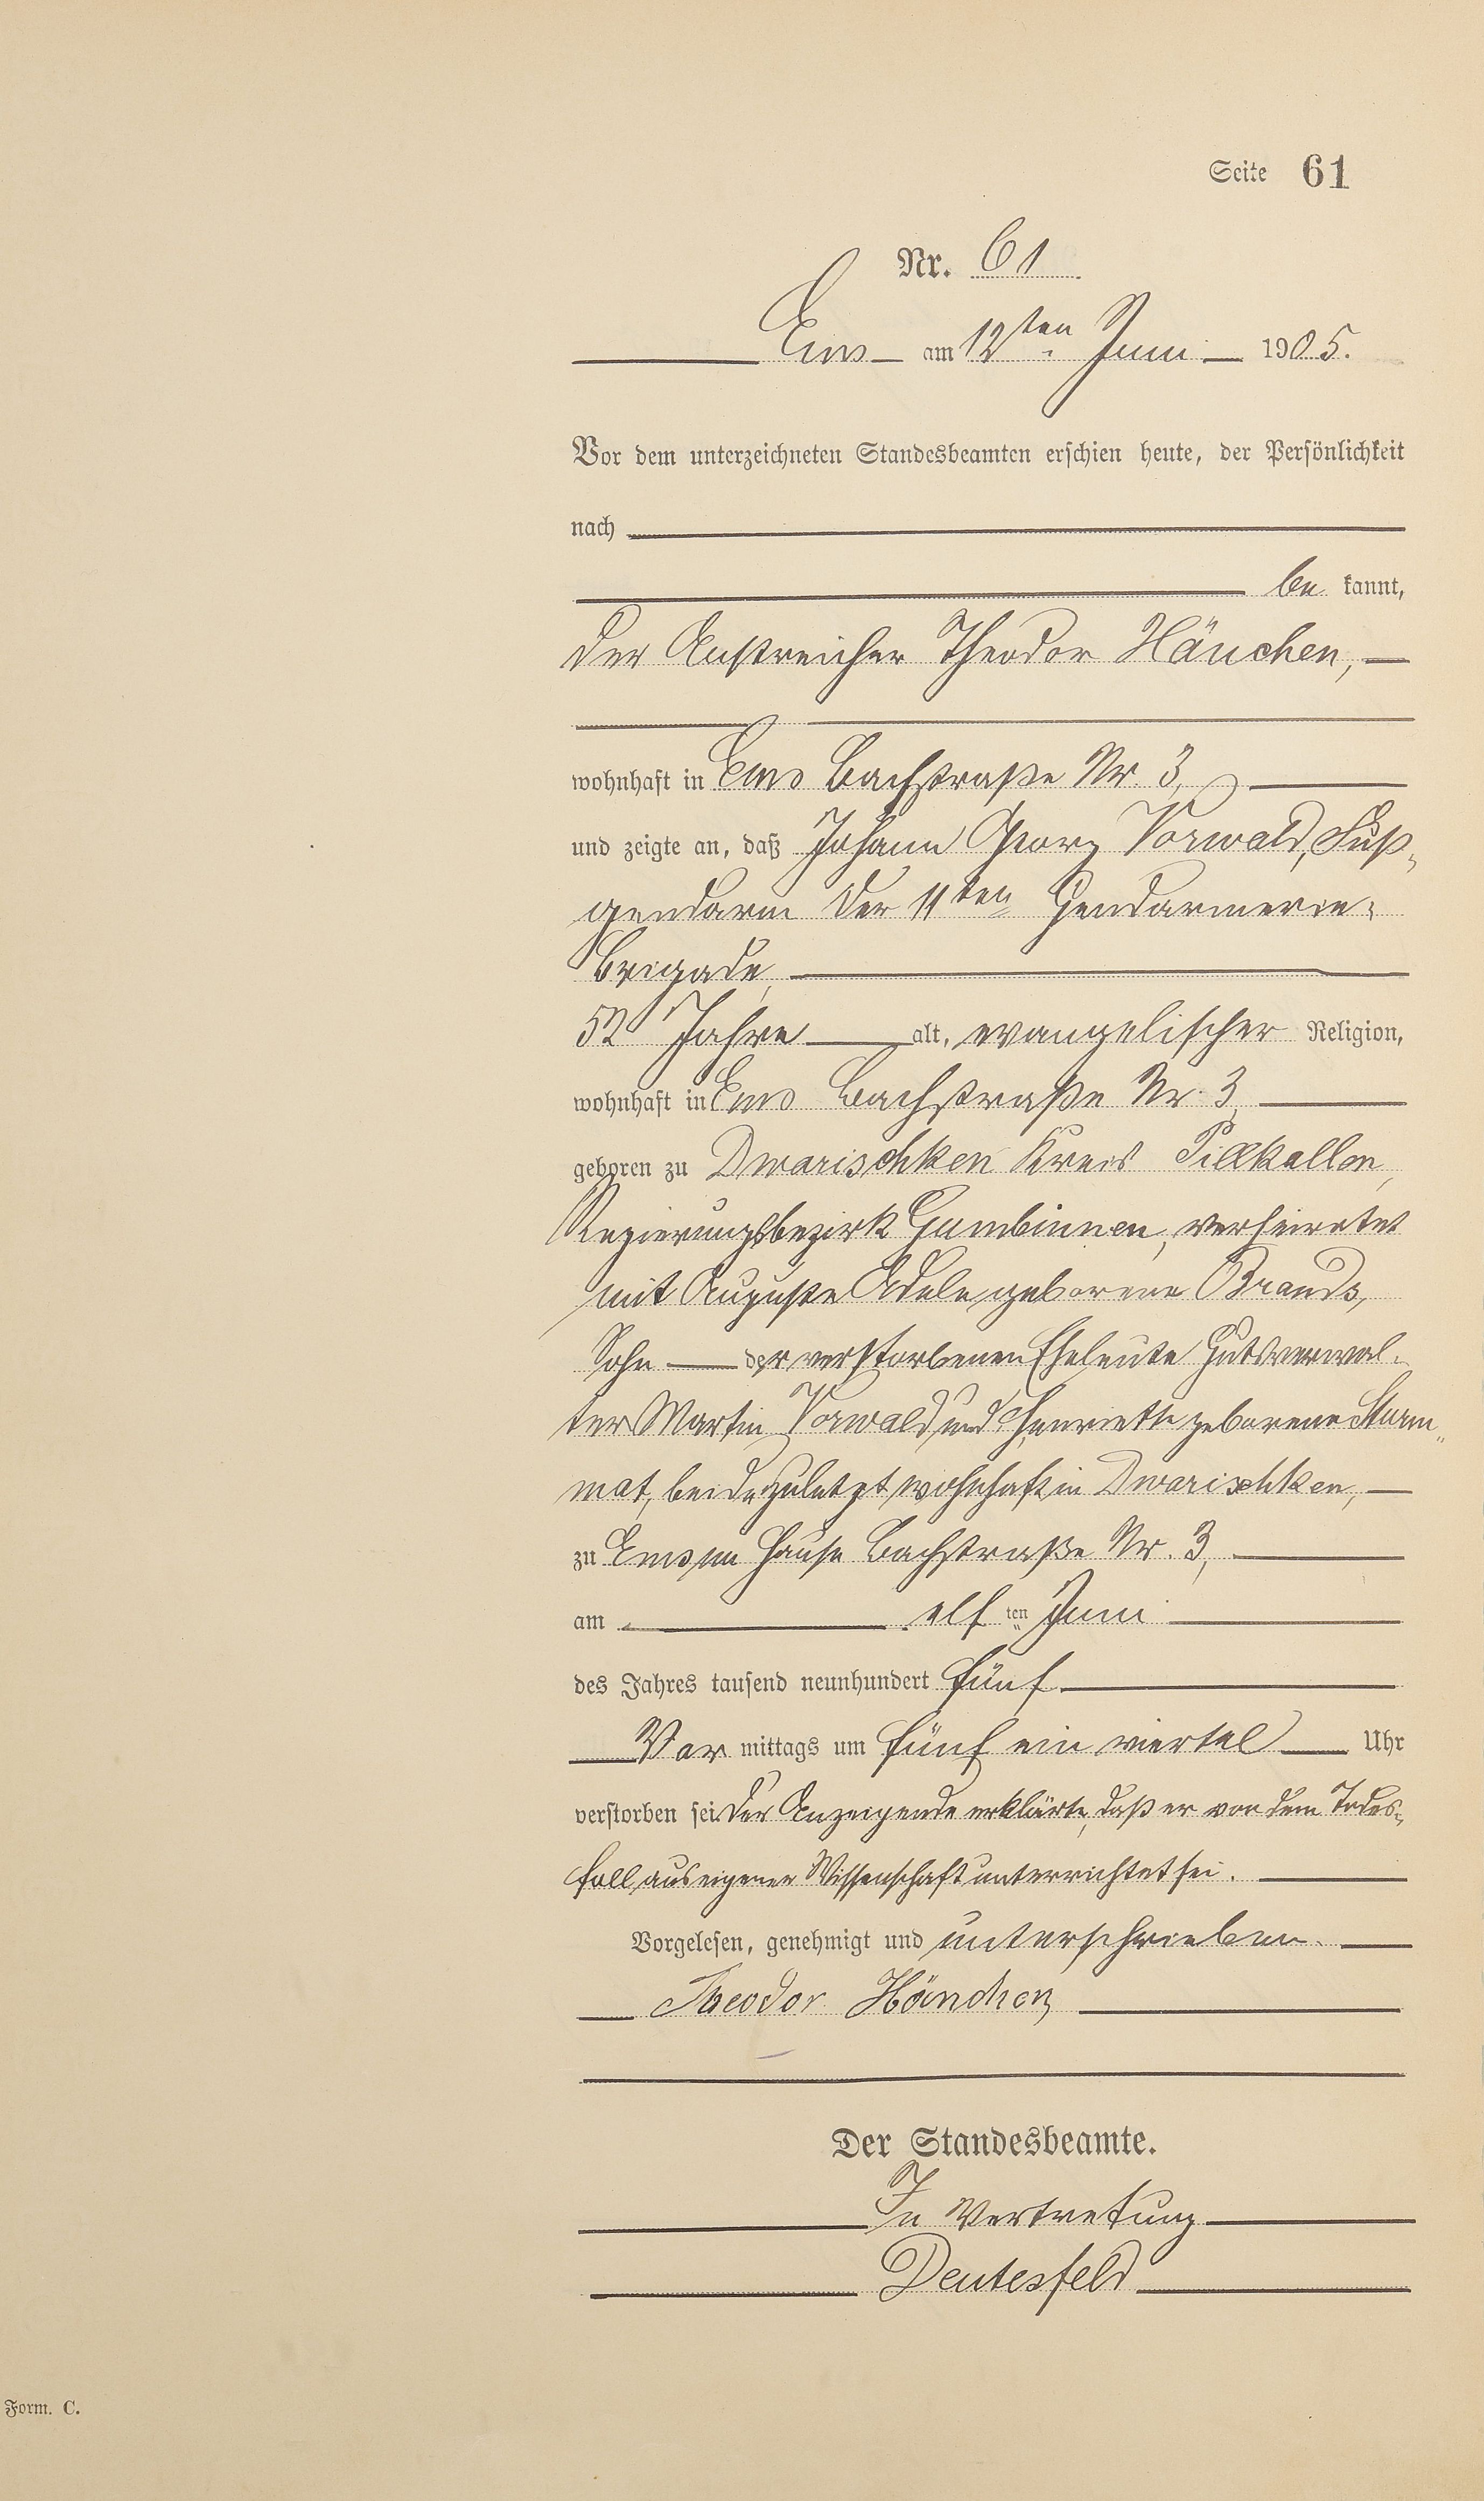 Seite 61
Nr. 61
Ems am 12ten Juni 1905.
Vor dem unterzeichneten Standesbeamten erschien heute, der Persönlichkeit
nach
be kannt,
der Anstreicher Theodor Hänchen,
wohnhaft in Ems Bachstraße Nr. 3,
und zeigte an, daß Johann Georg Vorwald, Fuß-
gendarm der 11ten Gendarmerie-
brigade,
52 Jahre alt, evangelischer Religion,
wohnhaft in Ems Bachstraße Nr. 3
geboren zu Dwarischken Kreis Pillkallen,
Regierungsbezirk Gumbinnen, verheiratet
mit Auguste Adele geborene Brands,
Sohn der verstorbenen Eheleute Gutsverwal-
ter Martin Vorwald und Henriette geborene Sturm-
mat, beide zuletzt wohnhaft in Dwarischken,
zu Ems im Hause Bachstraße Nr. 3,
am elf ten Juni
des Jahres tausend neunhundert fünf
Vor mittags um fünf ein viertel Uhr
verstorben sei. Der Anzeigende erklärte, daß er von dem Todes-
fall aus eigener Wissenschaft unterrichtet sei.
Vorgelesen, genehmigt und unterschrieben.
Theodor Hänchen
Der Standesbeamte.
In Vertretung
Deutesfeld
Form. C.